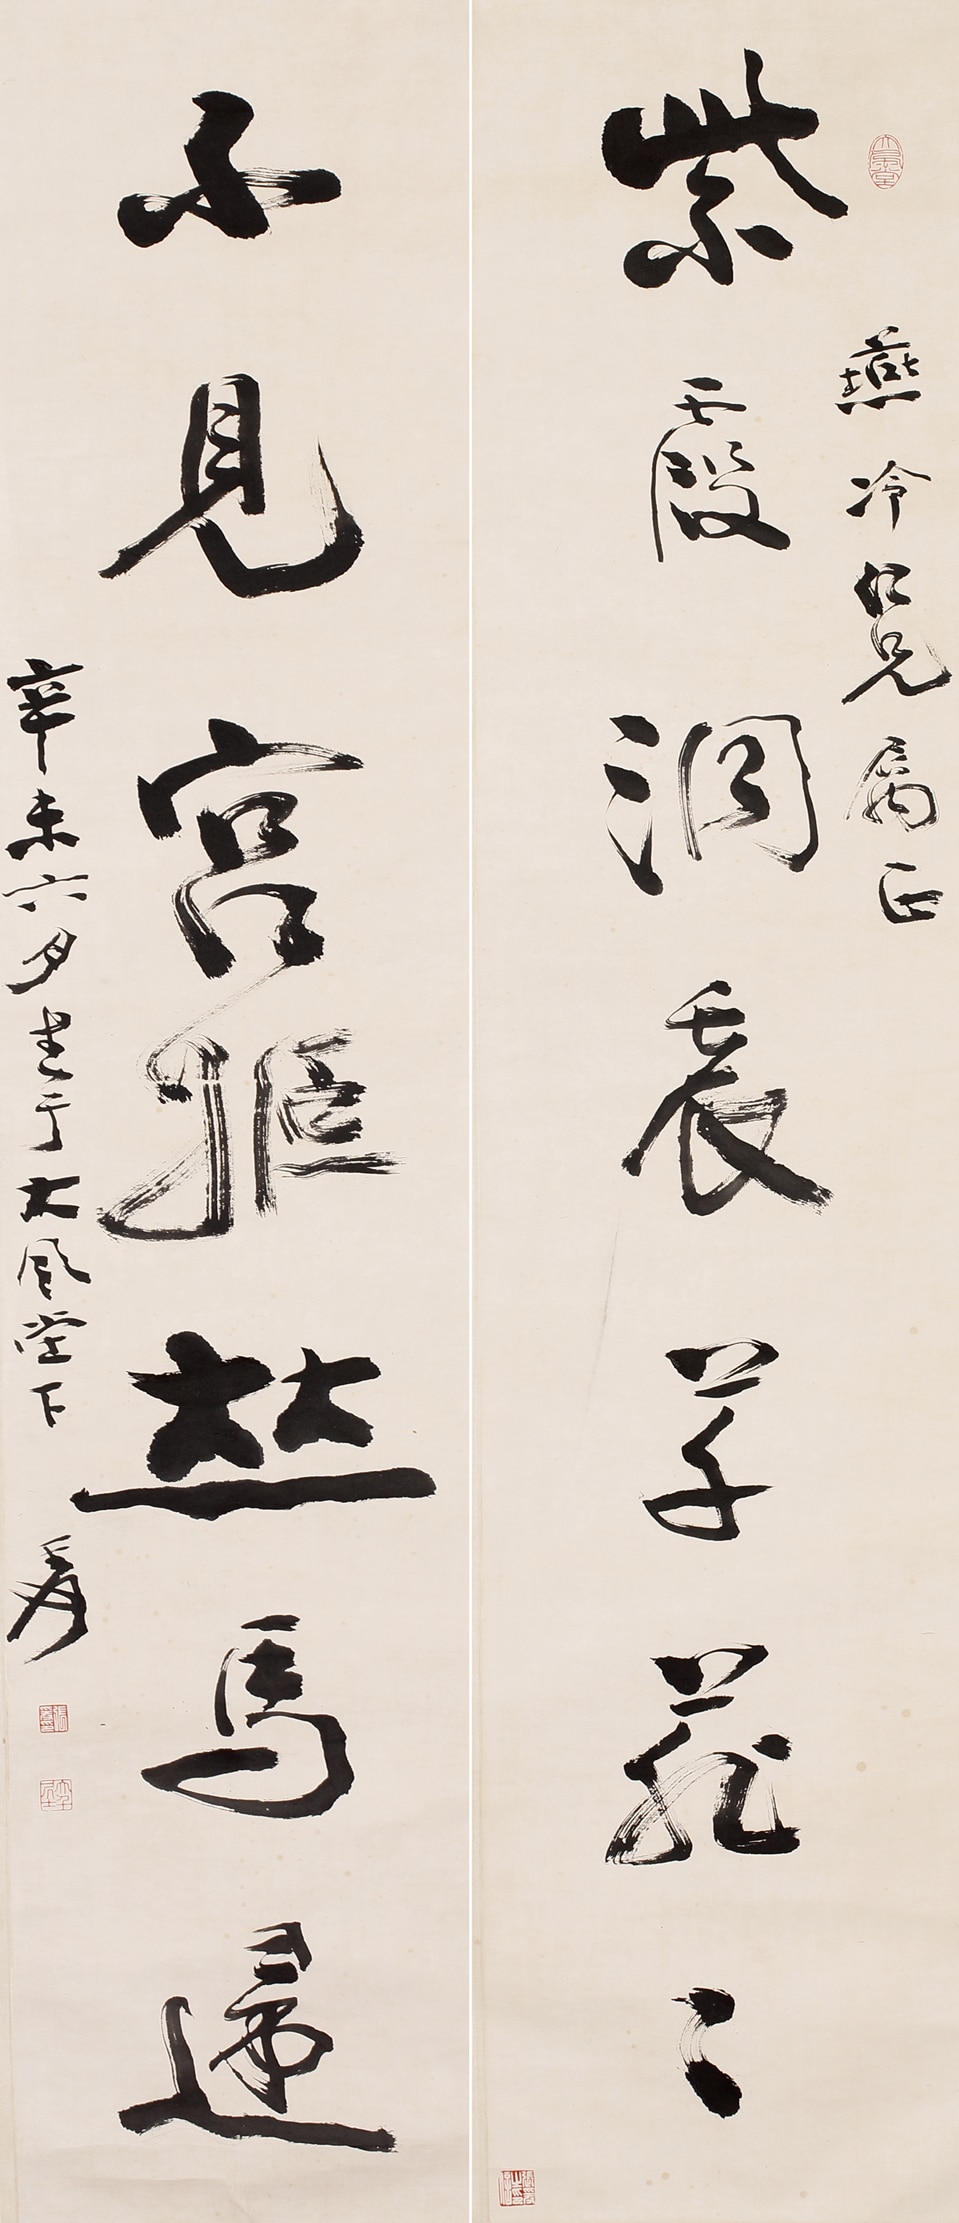 燕冷仁兄屬正
紫霞洞裏草菲〻
不見宮姬竝馬歸
辛未六月書于大風堂下 爰